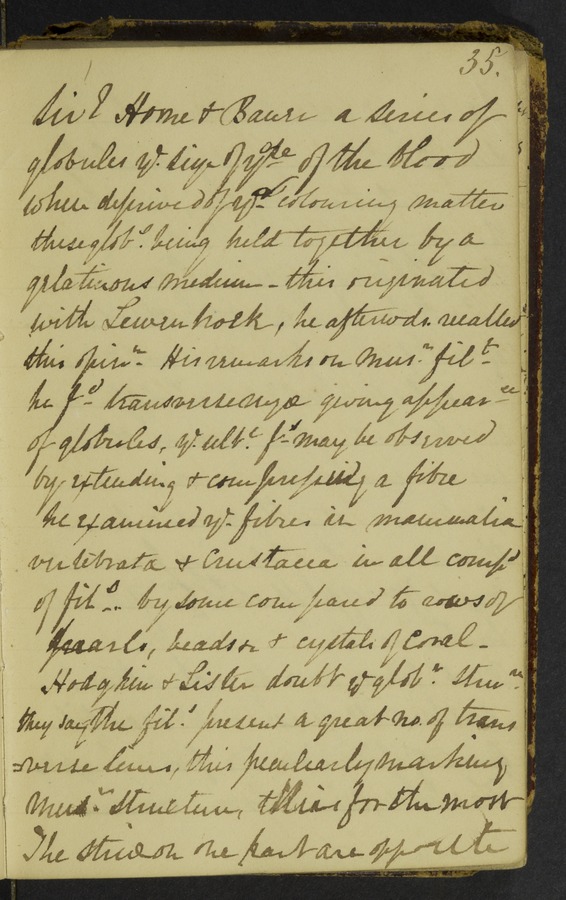 35.
Sir E Home & Bauer a series of
globules ye size of yose of the blood
when deprived of yr colouring matter
these globs. being held together by a
gelatinous medium - this originated
with Lewenhoek, he afterwds. recalled
this opinn. His remarks on Musr filt.
he fd transverse rugæ giving appearce
of globules, ye ultt. fs may be observed
by extending & compressing a fibre
he examined ye fibres in mammalia
vertebrata & Crustacea in all compd
of fils.. by some compared to rows of
pearls, beads & crystals of Coral -
Hodgkin & Lister doubt ye globr. Strure.
they say the fils. present a great no. of trans
=verse lines, this peculiarly marking
Musr. Structure, for the most
The striæ on one part are opposite